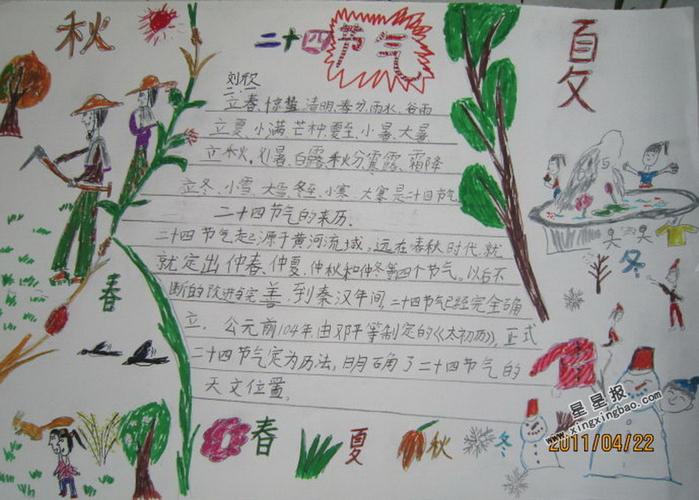 秋
二十四节气
夏
刘欣
立春、惊蛰、清明、春分、雨水、谷雨
立夏、小满、芒种、夏至、小暑、大暑
立秋、处暑、白露、秋分、寒露、霜降
立冬、小雪、大雪、冬至、小寒、大寒是二十四节气
二十四节气的来历：
二十四节气起源于黄河流域，远在春秋时代，就
就定出仲春、仲夏、仲秋和仲冬等四个节气。以后不
断的改进与完善，到秦汉年间，二十四节气已经完全确
立。公元前104年，由邓平等制定的《太初历》，正式
二十四节气定为历法，明确了二十四节气的
天文位置。
春
冬
春 夏 秋 冬
星星报
www.xingxingbao.com
2011/04/22